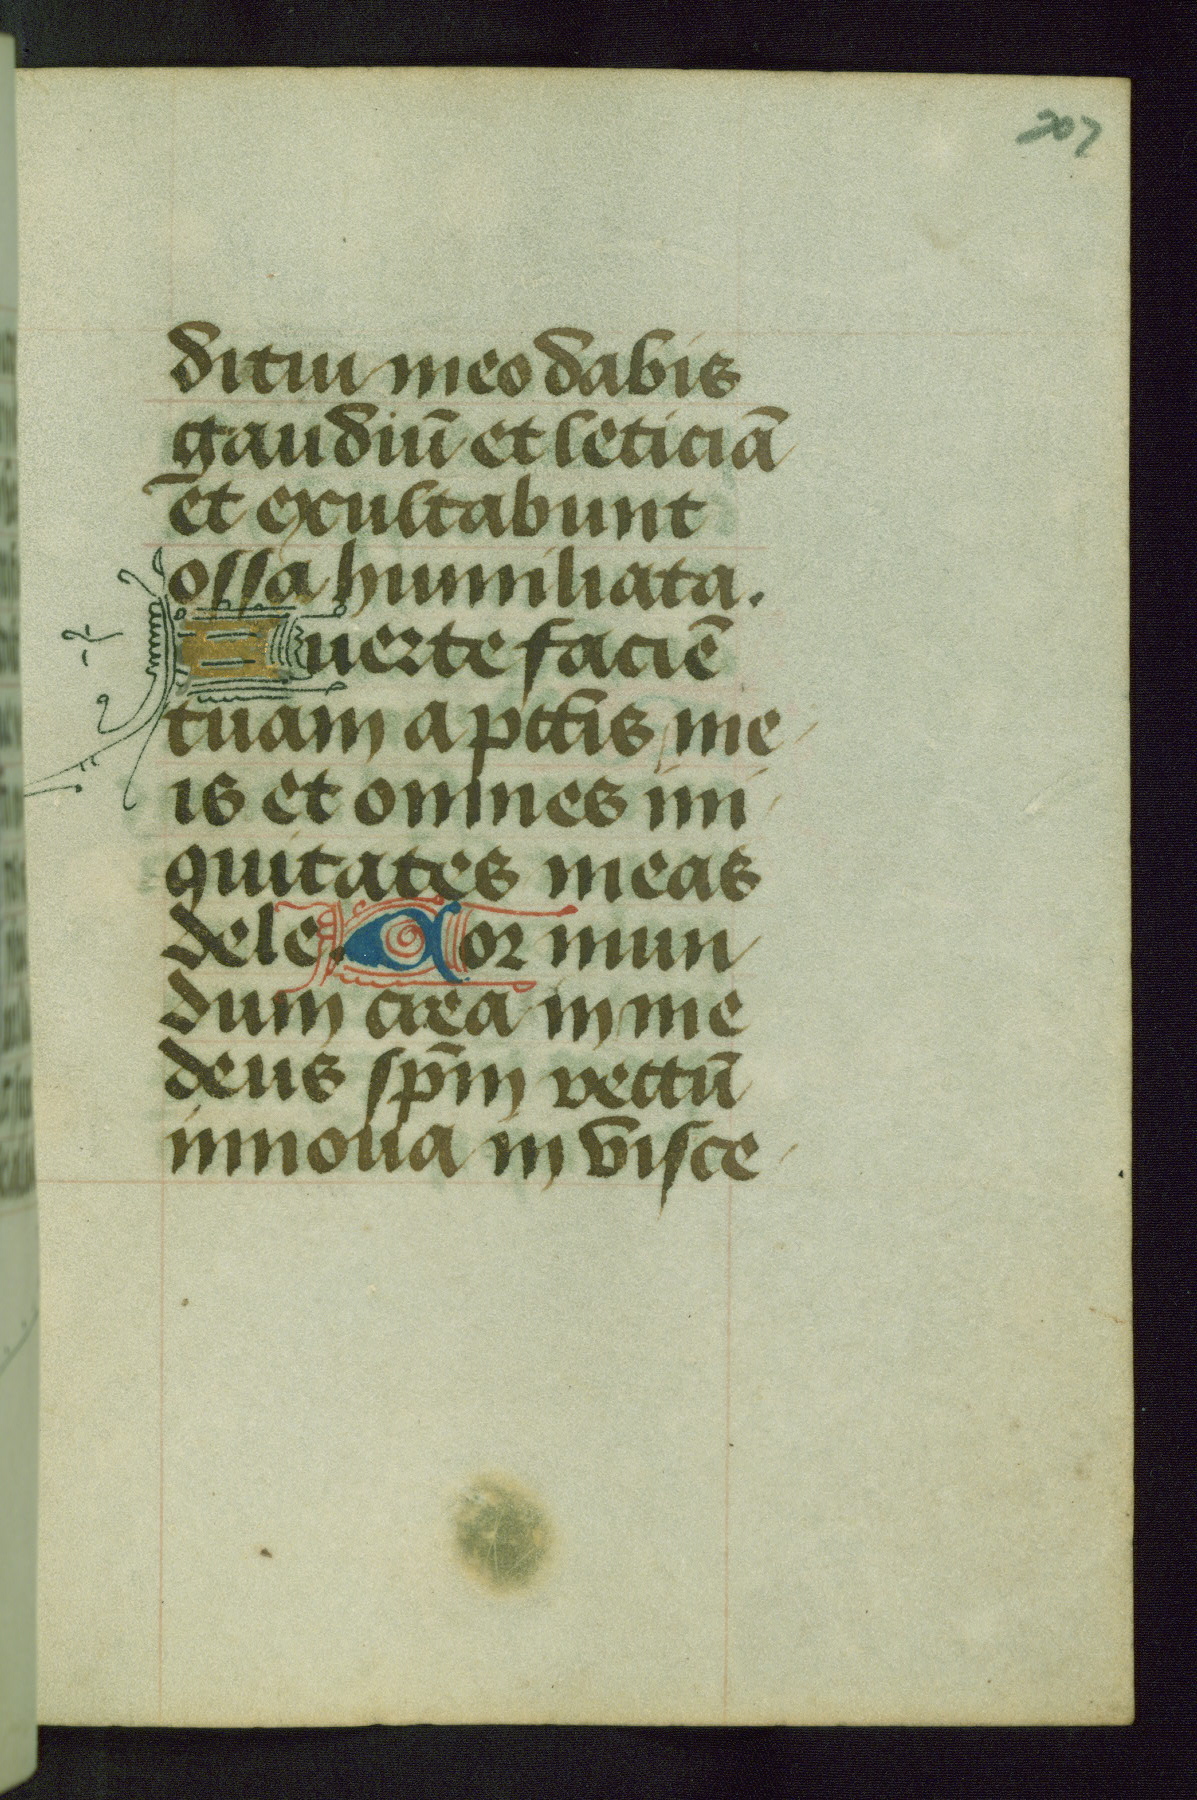 207
ditui meo dabis
gaudiū et leticiā
et exultabunt
ossa humiliata.
Auerte faciē
tuam a pctīs me
is et omnes ini
quitates meas
dele. Cor mun
dum crea in me
deus spm̄ rectū
innoua in visce